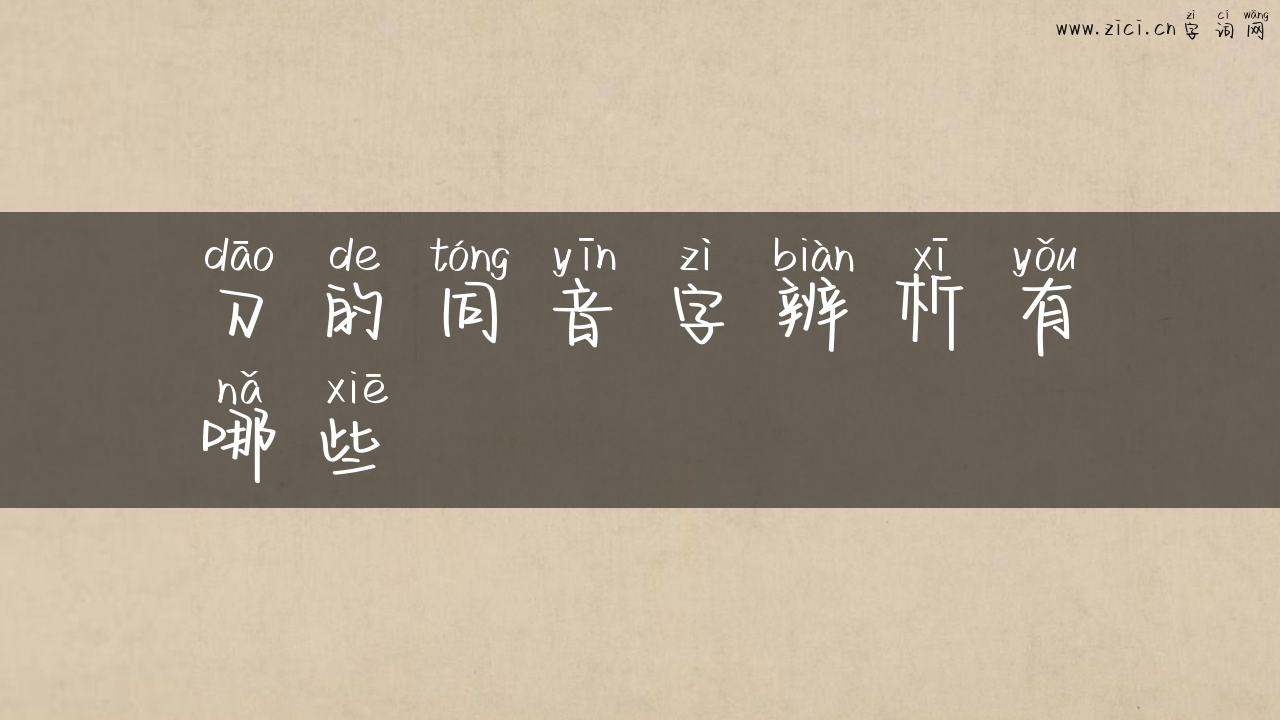 zì cí wǎng
www.zici.cn 字词网
dāo de tóng yīn zì biàn xī yǒu
刀的同音字辨析有
nǎ xiē
哪些